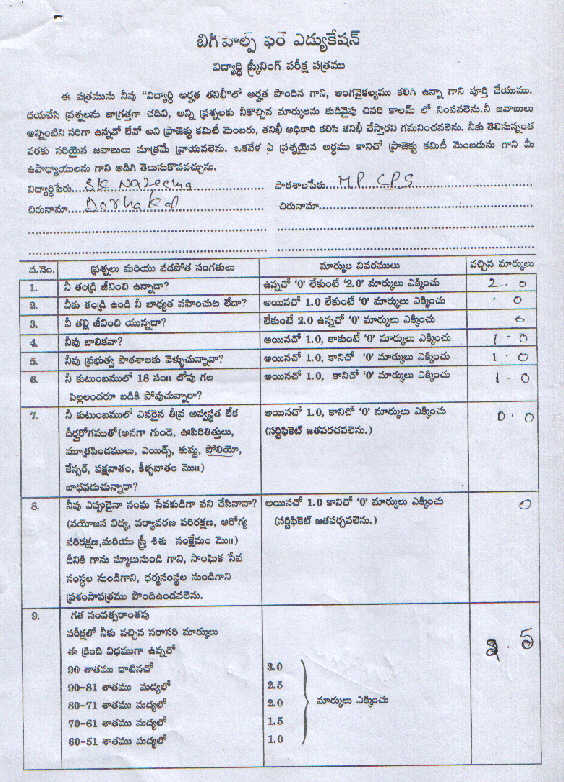 బిగ్ హెల్ప్ ఫర్ ఎడ్యుకేషన్
విద్యార్థి స్క్రీనింగ్ పరీక్ష పత్రము
ఈ పత్రమును నీవు "విద్యార్థి అర్హత తనిఖీ"లో అర్హత పొందిన గాని, అంగవైకల్యము కలిగి ఉన్నా గాని పూర్తి చేయుము.
దయచేసి ప్రశ్నలను జాగ్రత్తగా చదివి, అన్ని ప్రశ్నలకు నీకొచ్చిన మార్కులను కుడివైపు చివరి కాలమ్ లో నింపవలెను.నీ జవాబులు
అన్నింటిని సరిగా ఉన్నవో లేవో అని ప్రాజెక్టు కమిటీ మెంబరు, తనిఖీ అధికారి కలిసి తనిఖీ చేస్తారని గమనించవలెను. నీకు తెలిసినంత
వరకు సరియైన జవాబులు మాత్రమే వ్రాయవలెను. ఒకవేళ ఏ ప్రశ్నయైన అర్థము కానిచో ప్రాజెక్టు కమిటీ మెంబరును గాని మీ
ఉపాధ్యాయులను గాని అడిగి తెలుసుకొనవచ్చును.
విద్యార్థిపేరు..... SK Nazeema పాఠశాలపేరు..... MP CPS
చిరునామా..... చిరునామా.....
వ.నెం. ప్రశ్నలు మరియు వడపోత సంగతులు మార్కుల వివరములు వచ్చిన మార్కులు
1. నీ తండ్రి జీవించి ఉన్నాడా? ఉన్నచో '0' లేకుంటే '2.0' మార్కులు ఎక్కించు 2.0
2. నీకు తండ్రి ఉండి నీ బాధ్యత వహించుట లేదా? అయినచో 1.0 లేకుంటే '0' మార్కులు ఎక్కించు 0
3. నీ తల్లి జీవించి యున్నదా? లేకుంటే 2.0 ఉన్నచో '0' మార్కులు ఎక్కించు 0
4. నీవు బాలికవా? అయినచో 1.0, కాకుంటే '0' మార్కులు ఎక్కించు 1.0
5. నీవు ప్రభుత్వ పాఠశాలకు వెళ్ళుచున్నావా? అయినచో 1.0, కానిచో '0' మార్కులు ఎక్కించు 1.0
6. నీ కుటుంబములో 18 సం॥ లోపు గల అయినచో 1.0, కానిచో '0' మార్కులు ఎక్కించు 1.0
పిల్లలందరూ బడికి పోవుచున్నారా?
7. నీ కుటుంబములో ఎవరైన తీవ్ర అస్వస్థత లేక అయినచో 1.0, కానిచో '0' మార్కులు ఎక్కించు 0.0
దీర్ఘరోగముతో(అనగా గుండె, ఊపిరితిత్తులు, (సర్టిఫికెట్ జతపరచవలెను.)
మూత్రపిండములు, ఎయిడ్స్, కుష్టు, పోలియో,
కేన్సర్, పక్షవాతం, కీళ్ళవాతం మొ॥)
బాధపడుచున్నారా?
8. నీవు ఎప్పుడైనా సంఘ సేవకుడిగా పని చేసినావా? అయినచో 1.0 కానిచో '0' మార్కులు ఎక్కించు 0
(వయోజన విద్య, పర్యావరణ పరిరక్షణ, ఆరోగ్య (సర్టిఫికెట్ జతపర్చవలెను.)
పరిరక్షణ,మరియు స్త్రీ శిశు సంక్షేమం మొ॥)
దీనికి గాను స్కూలునుండి గాని, సాంఘిక సేవ
సంస్థల నుండిగాని, ధర్మసంస్థల నుండిగాని
ప్రశంసాపత్రము పొందిఉండవలెను.
9. గత సంవత్సరాంతపు
పరీక్షలో నీకు వచ్చిన సరాసరి మార్కులు
ఈ క్రింది విధముగా ఉన్నచో
90 శాతము దాటినచో 3.0
90-81 శాతము మధ్యలో 2.5
80-71 శాతము మధ్యలో 2.0 మార్కులు ఎక్కించు
70-61 శాతము మధ్యలో 1.5
60-51 శాతము మధ్యలో 1.0